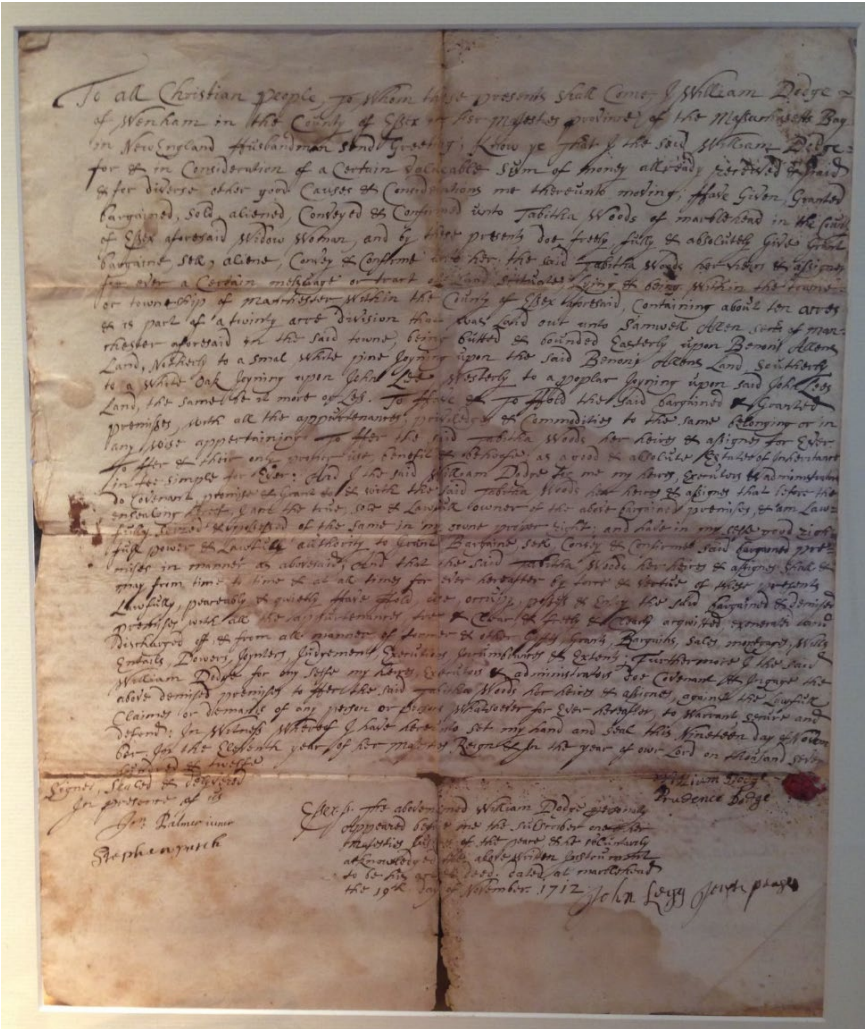 To all Christian people, To Whom these presents Shall Come; I William Dodge
of Wenham in the County of Essex in her Majesties province of the Massachusetts Bay
in New England Husbandman Send Greeting; Know ye That I the said William Dodge
for & in Consideration of a Certain Valueable Sum of money allready Received & paid
& for diverse other good Causes & Considerations me thereunto moving, Have Given, Granted
bargained, Sold, aliened, Conveyed & Confirmed unto Tabitha Woods of marblehead in the County
of Essex aforesaid Widow Woman, and by these presents doe freely, fully & absolutely Give Grant
bargaine Sell, aliene, Convey & Confirme unto her, the said Tabitha Woods her heires & assignes
for ever a Certain messuage or tract of Land Scituate, Lying & being Within the towne
or towneship of Manchester Within the County of Essex aforesaid, Containing about ten acres
& is part of a twinty acre division that was Laid out unto Samuell Allen of Man-
chester aforesaid in the said towne, being butted & bounded Easterly upon Benoni Allens
Land, Northerly to a Smal White pine Joyning upon the said Benoni Allens Land Southerly
to a White Oak Joyning upon John Lees Westerly to a poplar Joyning upon said John Lees
Land, the same be it more or Les. To Have & To Hold the said bargained & Granted
premises, With all the appurtenances, priviledges & Commodities to the same belonging or in
any wise appertaining To Her the said Tabitha Woods her heires & assignes for Ever
To Her & their only proper use, benefit & behoofe, as a good & absolute Estate of Inheritance
in fee simple for Ever; And I the said William Dodge for me my heires, Executors & administrators
do Covenant promise & Grant to & with the said Tabitha Woods her heires & assignes that before the
ensealing hereof, I am the true, sole & Lawfull owner of the above bargained premises, & am Law-
fully Seized & of the same in my owne proper right; and have in my selfe good right
full power & Lawfull authority to Grant Bargaine Sell Convey & Confirme said bargained pre-
mises in manner as abovesaid; And that she said Tabitha Woods her heires & assignes shall &
may from time to time & at all times for ever hereafter by force & vertue of these presents
Lawfully, peaceably & quietly Have Hold use occupy, posses & Enjoy the said bargained & demised
premises with all the appurtenances free & Clear & freely & Clearly acquitted exonerated and
Discharged of & from all manner of former & other Gifts, Grants, Bargains, Sales, mortgages, Wills
Entails, Dowers, Joynters, Judgements, Executions Incumbrances & Extents, Furthermore I the said
William Dodge for my Selfe my heires, Executors & administrators doe Covenant & Ingage the
above demised premises to Her the said Tabitha Woods her heires & assignes, against the Lawfull
Claimes or demands of any person or persons Whatsoever for Ever hereafter, to Warrant Secure and
defend; In Witness Whereof I have hereunto set my hand and seal this Nineteen day of Novem
ber In the Eleventh year of her Majesties Reign In the year of our Lord on thousand Seven
hundred & twelve
Signed Sealed & Delivered
In presence of us
Stephen
William Dodge
Prudence Dodge
Essex ss. The above William Dodge personaly
Appeared before me the Subscriber one of her
Majesties Justices of the peace & he voluntarily
acknowledged this above written Instrument
to be his act & Deed; dated at marblehead
the 19th day of November. 1712
John Legg